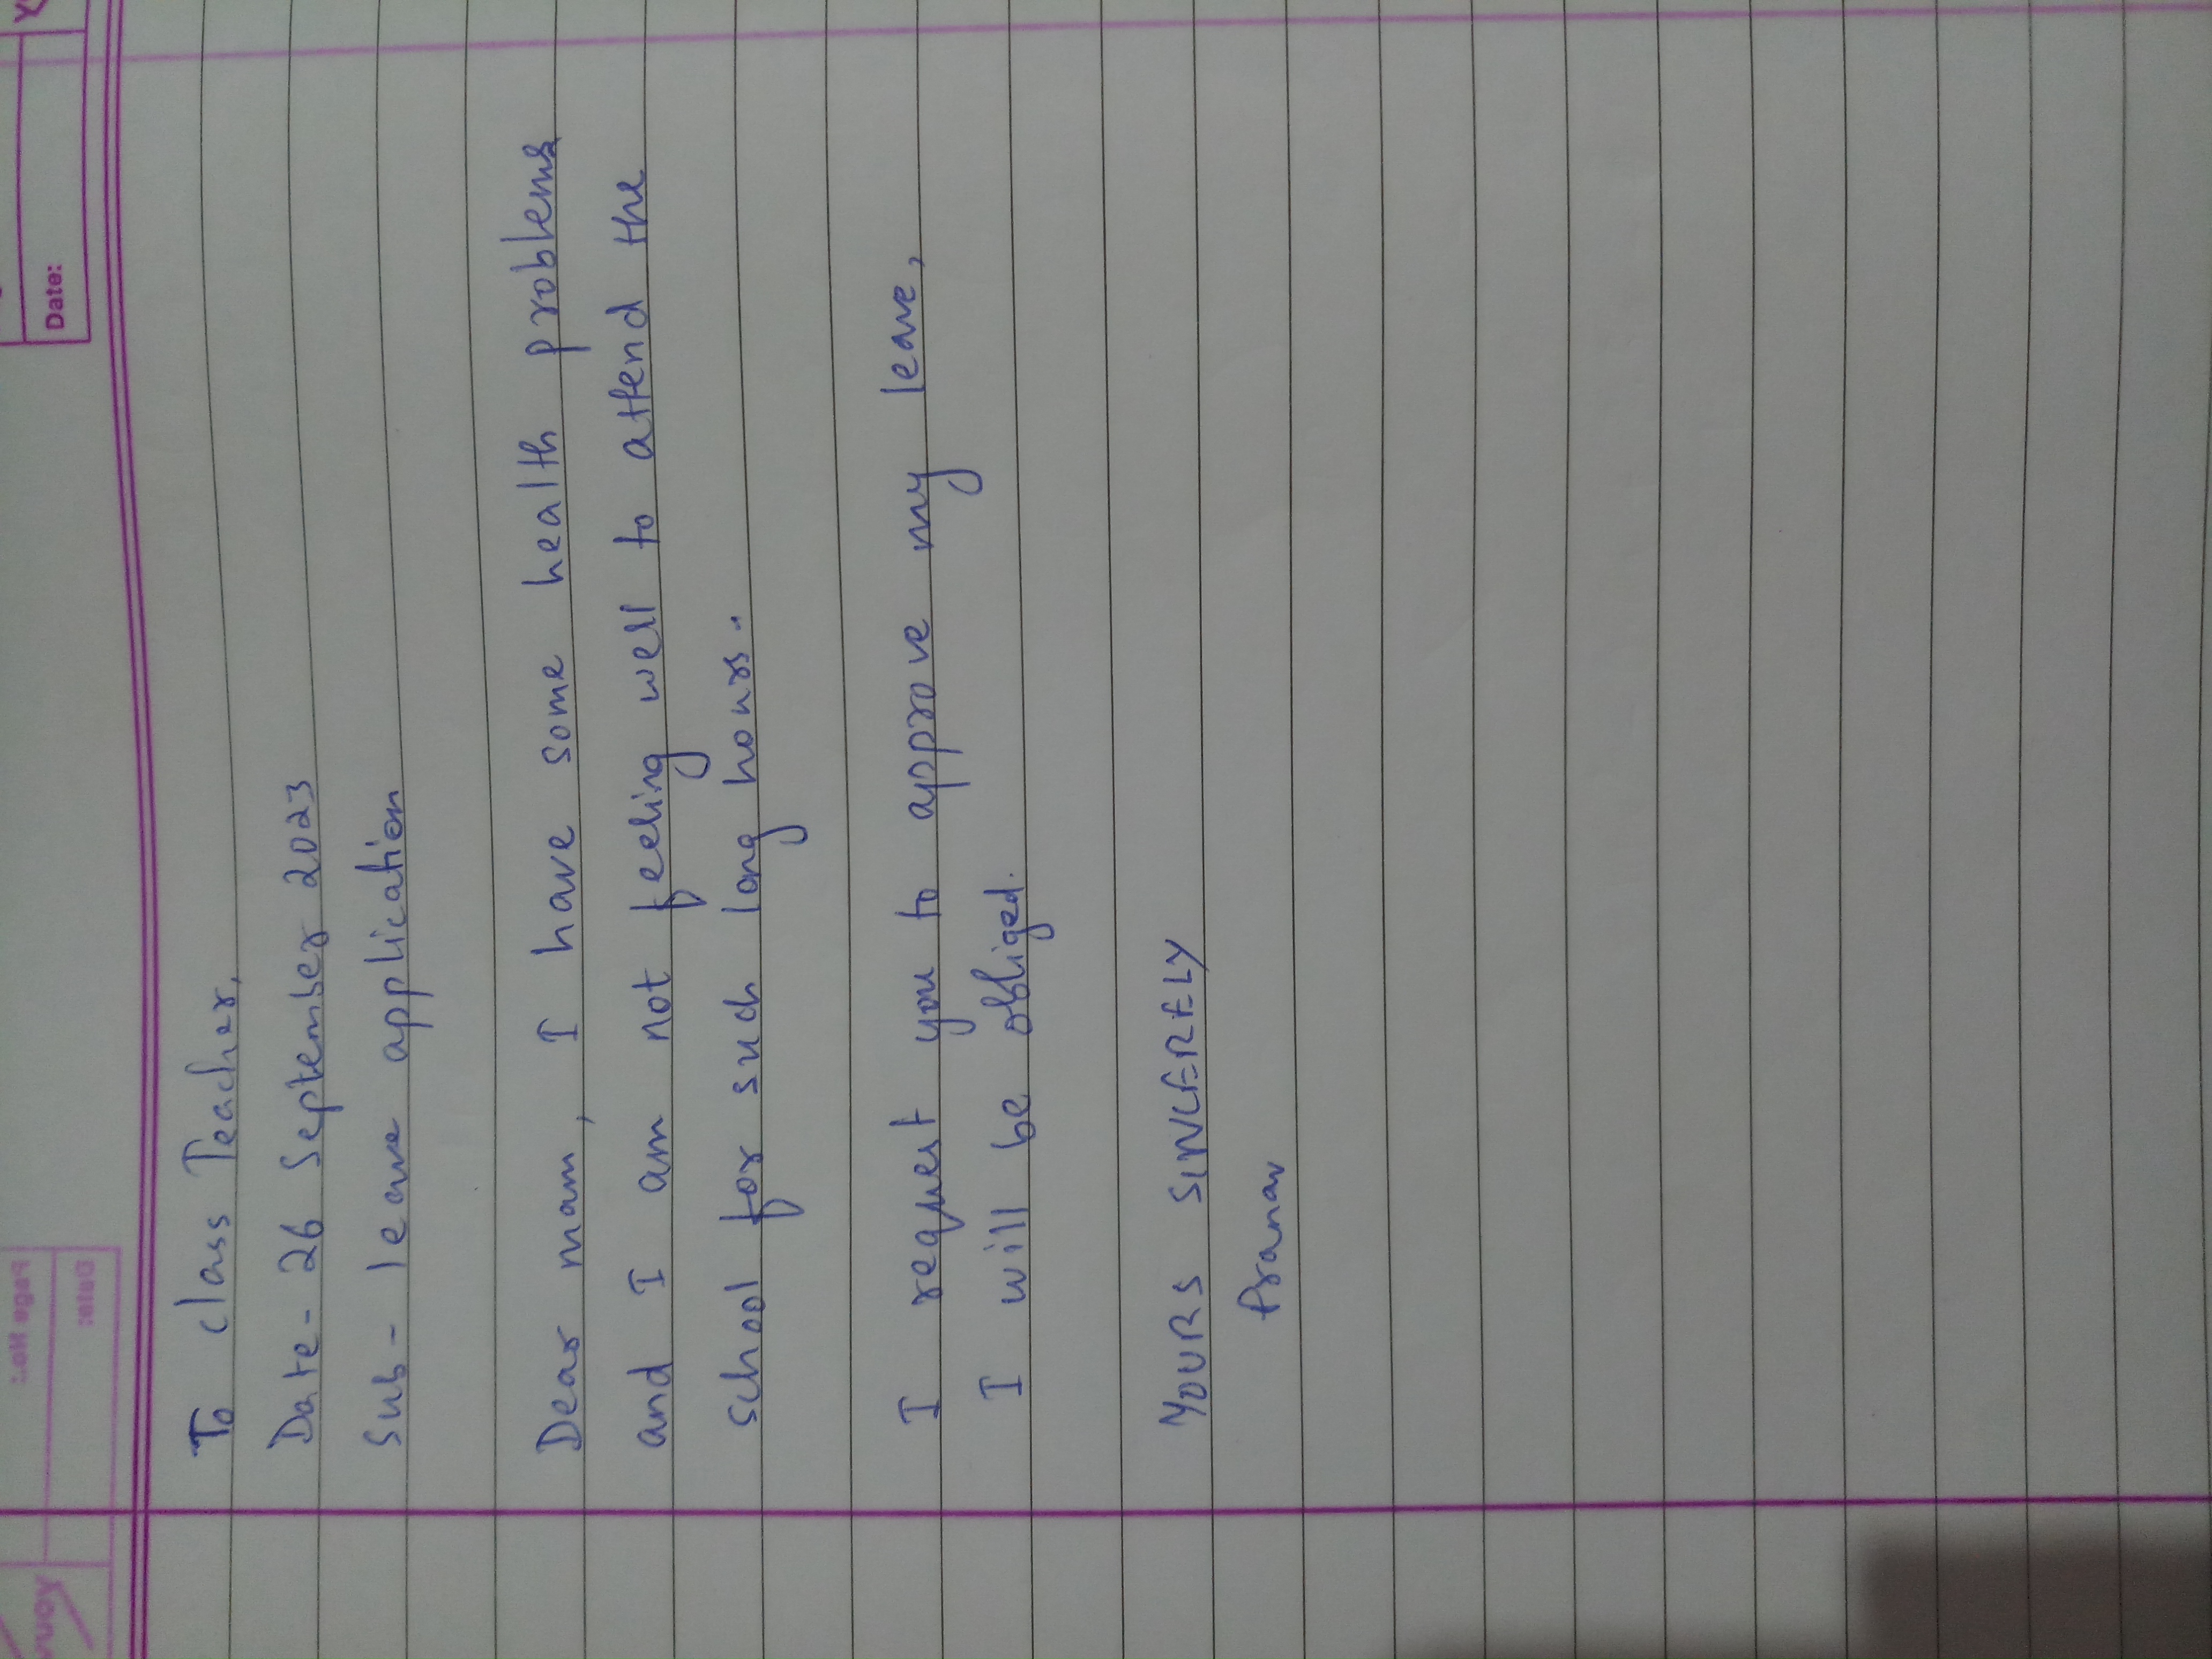 Date:
To class Teacher,
Date- 26 September 2023
Sub- leave application
Dear mam, I have some health problems
and I am not feeling well to attend the
school for such long hours.
I request you to approve my leave,
I will be obliged.
YOURS SINCERELY
Pranav